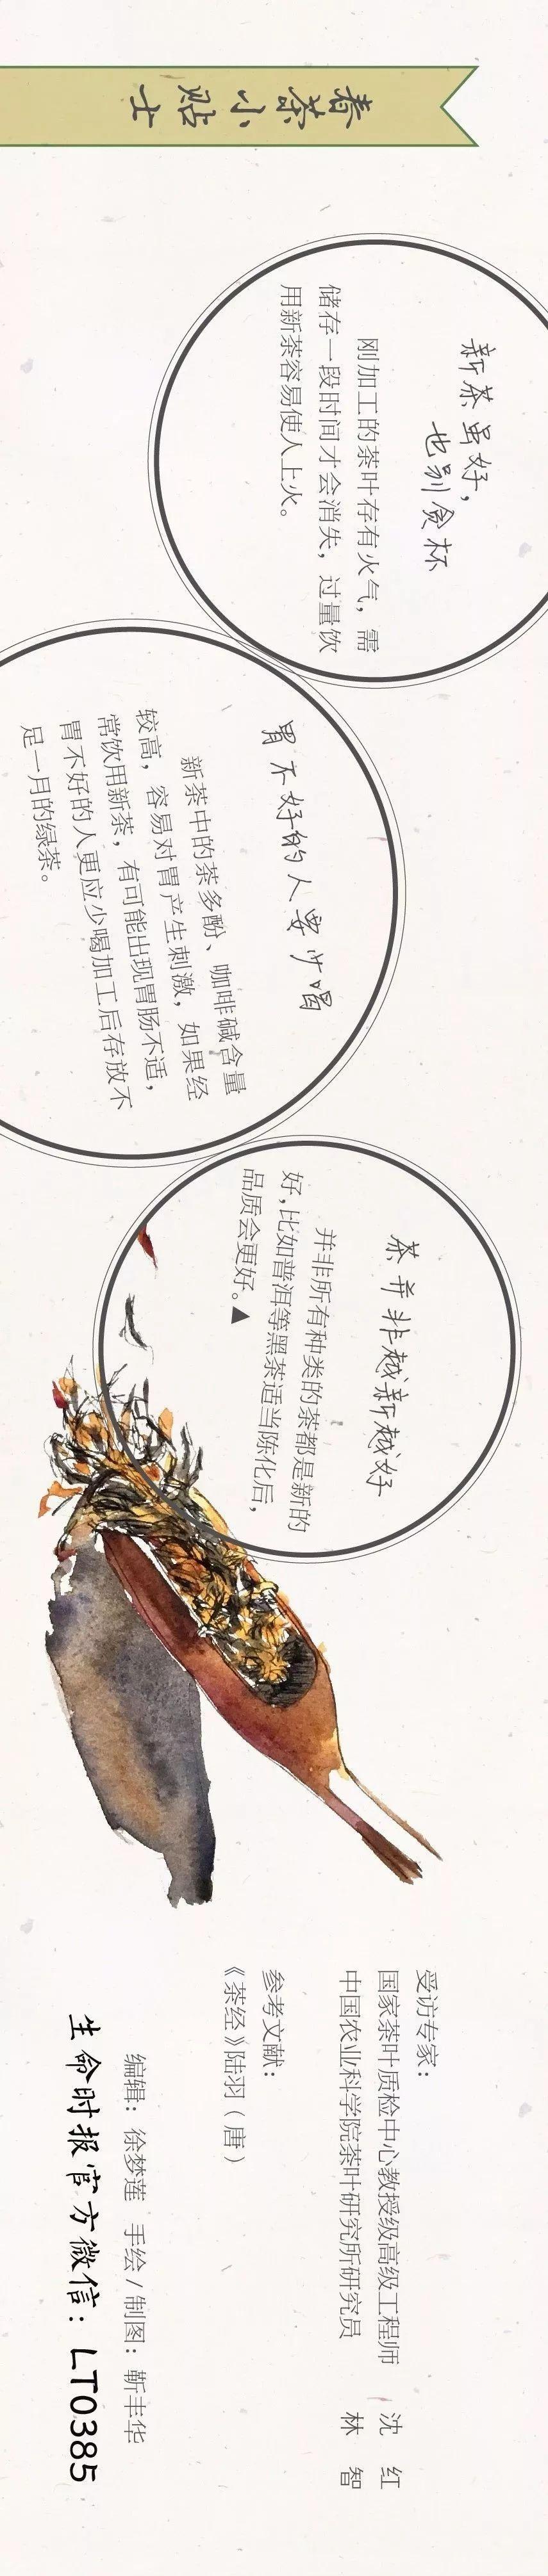 春茶小贴士
新茶虽好，
也别贪杯
刚加工的茶叶存有火气，需
储存一段时间才会消失，过量饮
用新茶容易使人上火。
胃不好的人要少喝
新茶中的茶多酚、咖啡碱含量
较高，容易对胃产生刺激，如果经
常饮用新茶，有可能出现胃肠不适，
胃不好的人更应少喝加工后存放不
足一月的绿茶。
茶并非越新越好
并非所有种类的茶都是新的
好，比如普洱等黑茶适当陈化后，
品质会更好。▲
受访专家：
国家茶叶质检中心教授级高级工程师 沈 红
中国农业科学院茶叶研究所研究员 林 智
参考文献：
《茶经》陆羽（唐）
编辑：徐梦莲 手绘/制图：靳丰华
生命时报官方微信：LT0385